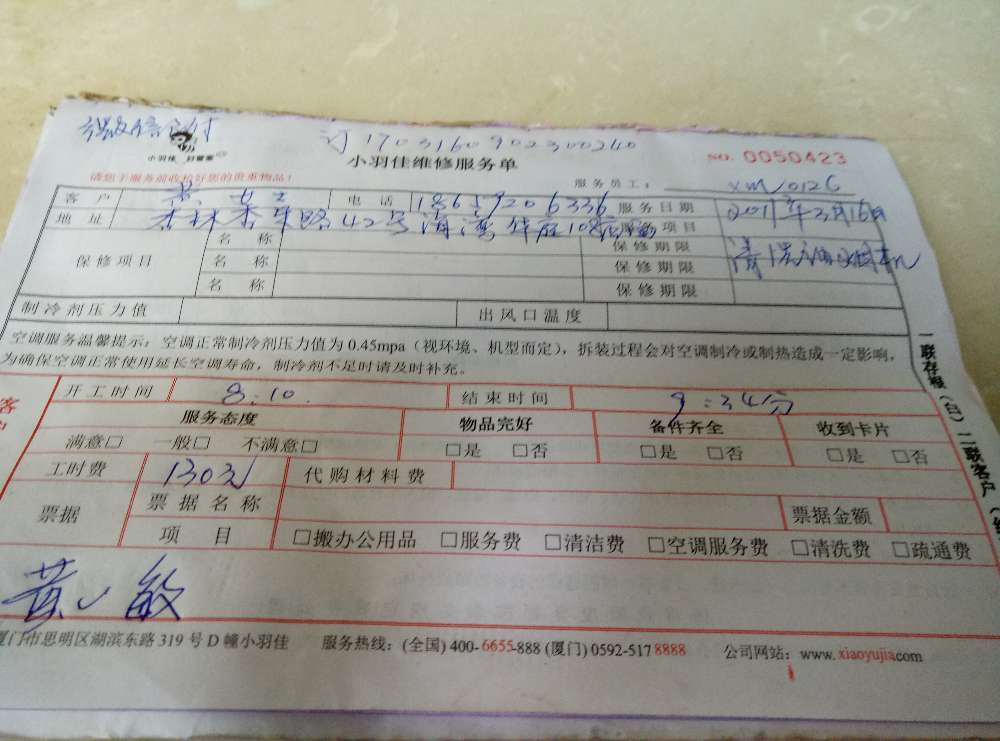 微信支付 订1703160902300240
小羽佳 好管家 小羽佳维修服务单 NO. 0050423
请您于服务前收拾好您的贵重物品! 服务员工: XM0126
客户 黄女士 电话 18659206336 服务日期 2017年3月16日
地址 杏林杏东路42号清湾华庭108 服务项目 清洗油烟机
保修项目 名称 保修期限
名称 保修期限
名称 保修期限
制冷剂压力值 出风口温度
空调服务温馨提示:空调正常制冷剂压力值为0.45mpa(视环境、机型而定),拆装过程会对空调制冷或制热造成一定影响,
为确保空调正常使用延长空调寿命,制冷剂不足时请及时补充。
开工时间 8:10 结束时间 9:34分
服务态度 物品完好 备件齐全 收到卡片
满意□ 一般□ 不满意□ □是 □否 □是 □否 □是 □否
工时费 130元 代购材料费
票据 票据名称 票据金额
项目 □搬办公用品 □服务费 □清洁费 □空调服务费 □清洗费 □疏通费
黄 敏
厦门市思明区湖滨东路319号D幢小羽佳 服务热线:(全国)400-6655-888(厦门)0592-5178888 公司网站:www.xiaoyujia.com
一联存根(白)二联客户
客户